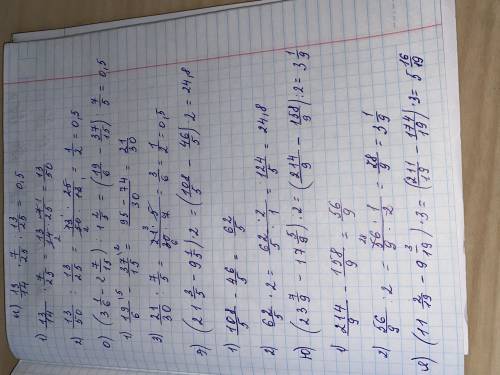 н) 13/14 · 7/25 : 13/25 = 0,5
1) 13/14 · 7/25 = 13·7/14·25 = 13/50
2) 13/50 : 13/25 = 13/50 · 25/13 = 1/2 = 0,5
о) (3 1/6 - 2 7/15) : 1 2/5 = (19/6 - 37/15) : 7/5 = 0,5
1) 19/6 - 37/15 = 95-74/30 = 21/30
3) 21/30 : 7/5 = 21·5/30·7 = 3/6 = 1/2 = 0,5
э) (21 3/5 - 9 1/5)·2 = (108/5 - 46/5)·2 = 24,8
1) 108/5 - 46/5 = 62/5
2) 62/5 · 2 = 62·2/5·1 = 124/5 = 24,8
ю) (23 7/9 - 17 5/9):2 = (214/9 - 158/9):2 = 3 1/9
1) 214/9 - 158/9 = 56/9
2) 56/9 : 2 = 56·1/9·2 = 28/9 = 3 1/9
я) (11 2/19 - 9 3/19)·3 = (211/19 - 174/19)·3 = 5 16/19